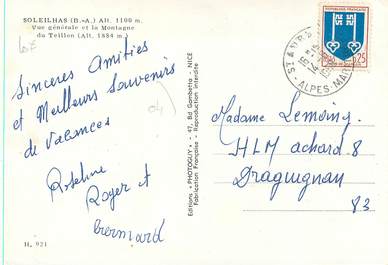 SOLEILHAS (B.-A.) Alt. 1100 m.
Vue générale et la Montagne
du Teillon (Alt. 1884 m.)
Sincères Amitiés
et Meilleurs Souvenirs
de Vacances
Roseline
Roger et
Bernard
H. 921
Editions "PHOTOGUY" - 47, Bd Gambetta - NICE
Fabrication Française - Reproduction interdite
REPUBLIQUE FRANÇAISE
0,25
ALPES-MAR
Madame Lemoing.
HLM achard 8
Draguignan
83